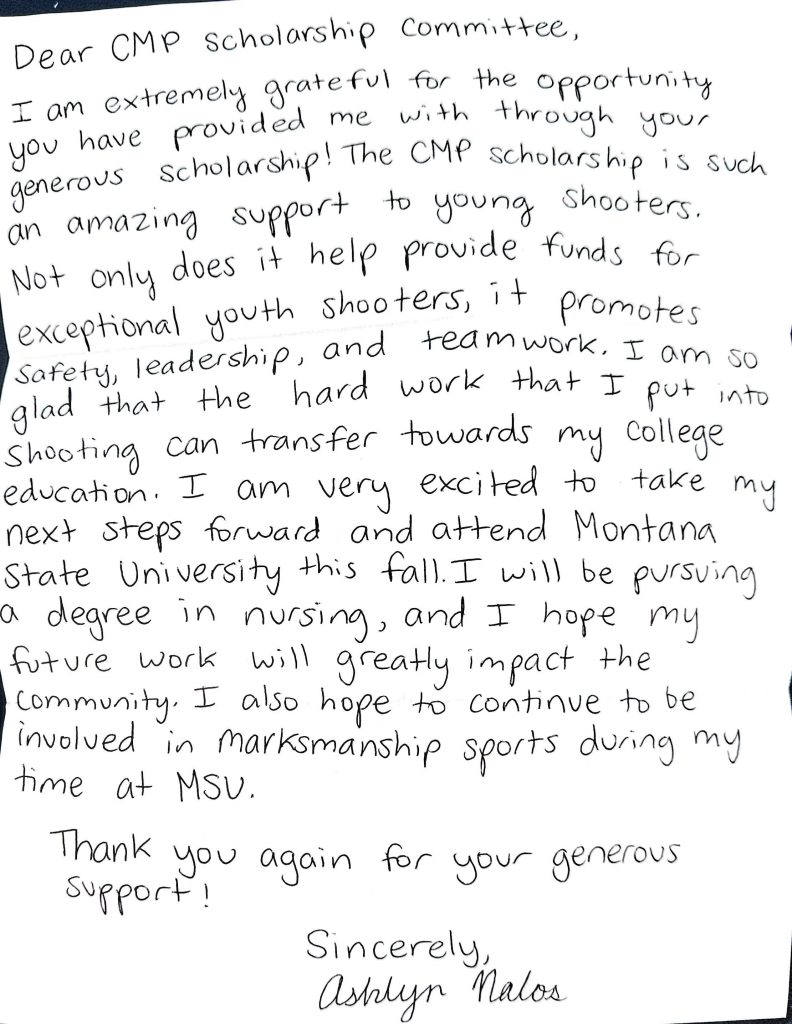 Dear CMP Scholarship Committee,
I am extremely grateful for the opportunity
you have provided me with through your
generous scholarship! The CMP scholarship is such
an amazing support to young shooters.
Not only does it help provide funds for
exceptional youth shooters, it promotes
safety, leadership, and teamwork. I am so
glad that the hard work that I put into
shooting can transfer towards my college
education. I am very excited to take my
next steps forward and attend Montana
State University this fall. I will be pursuing
a degree in nursing, and I hope my
future work will greatly impact the
community. I also hope to continue to be
involved in marksmanship sports during my
time at MSU.
Thank you again for your generous
support!
Sincerely,
Ashlyn Nalos